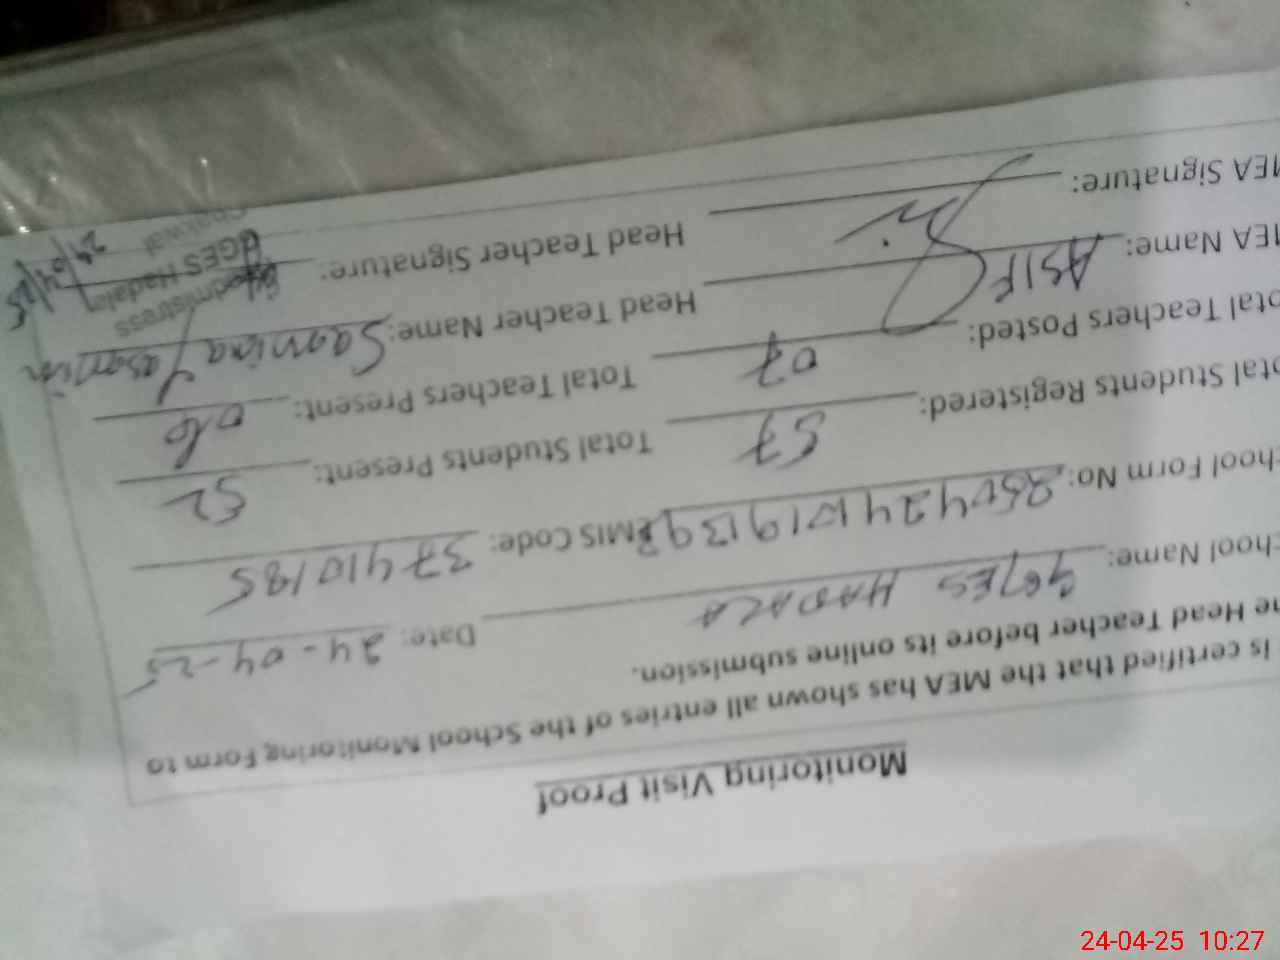 Monitoring Visit Proof
is certified that the MEA has shown all entries of the School Monitoring Form to
he Head Teacher before its online submission.
chool Name: GGES HADALA Date: 24-04-25
chool Form No: EMIS Code: 37410185
otal Students Registered: 57 Total Students Present: 52
otal Teachers Posted: 07 Total Teachers Present: 06
MEA Name: ASIF Head Teacher Name: Samina Yasmin
MEA Signature: Head Teacher Signature:
Headmistress
GGES Hadala
Chakwal
24/04/25
24-04-25 10:27